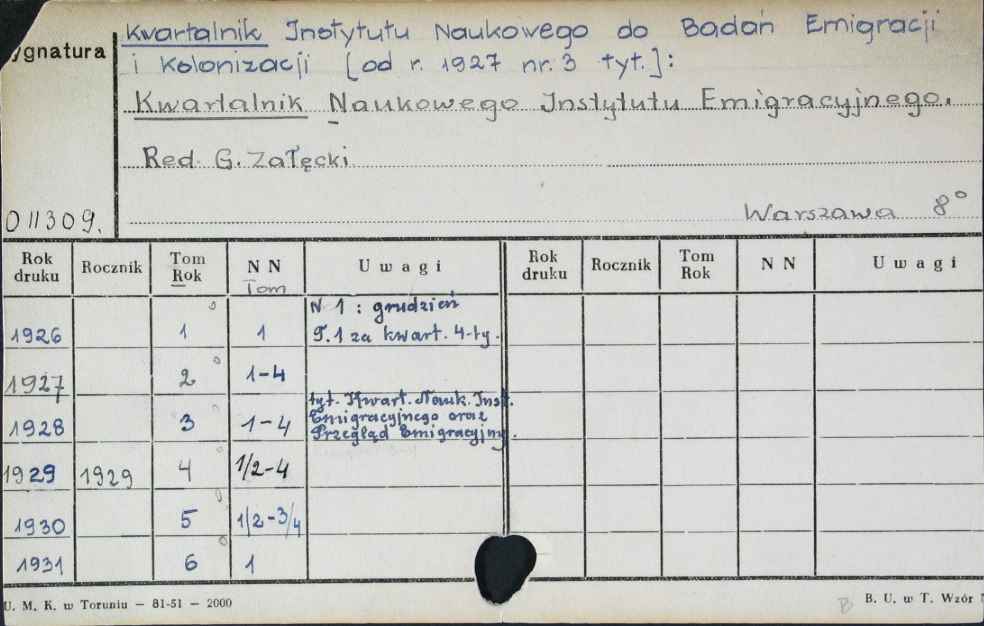 Kwartalnik Instytutu Naukowego do Badań Emigracji
ygnatura
i Kolonizacji [od r. 1927 nr. 3 tyt.]:
Kwartalnik Naukowego Instytutu Emigracyjnego.
Red. G. Załęcki
011309.
Warszawa 8°
Rok druku Rocznik Tom Rok NN Tom Uwagi Rok druku Rocznik Tom Rok NN Uwagi
N 1 : grudzień
1926 1 1 T. 1 za kwart. 4-ty.
1927 2 1-4
tyt. Kwart. Nauk. Inst.
Emigracyjnego oraz
1928 3 1-4 Przegląd Emigracyjny.
1929 1929 4 1/2-4
1930 5 1/2-3/4
1931 6 1
U. M. K. w Toruniu — 81-51 — 2000
B B. U. w T. Wzór